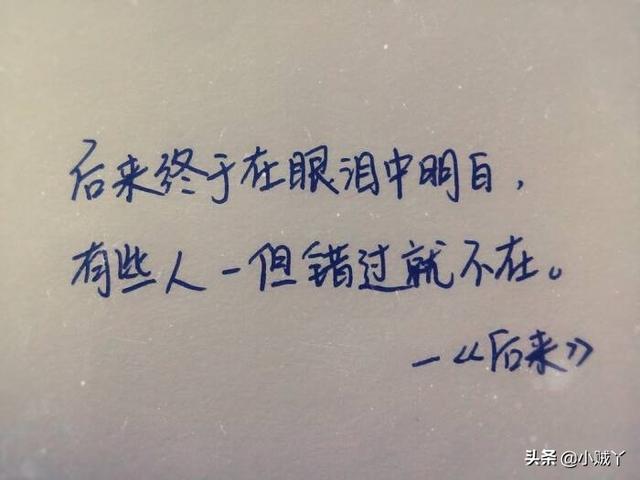 后来终于在眼泪中明白，
有些人一但错过就不在。
—《后来》
头条 @小贼丫